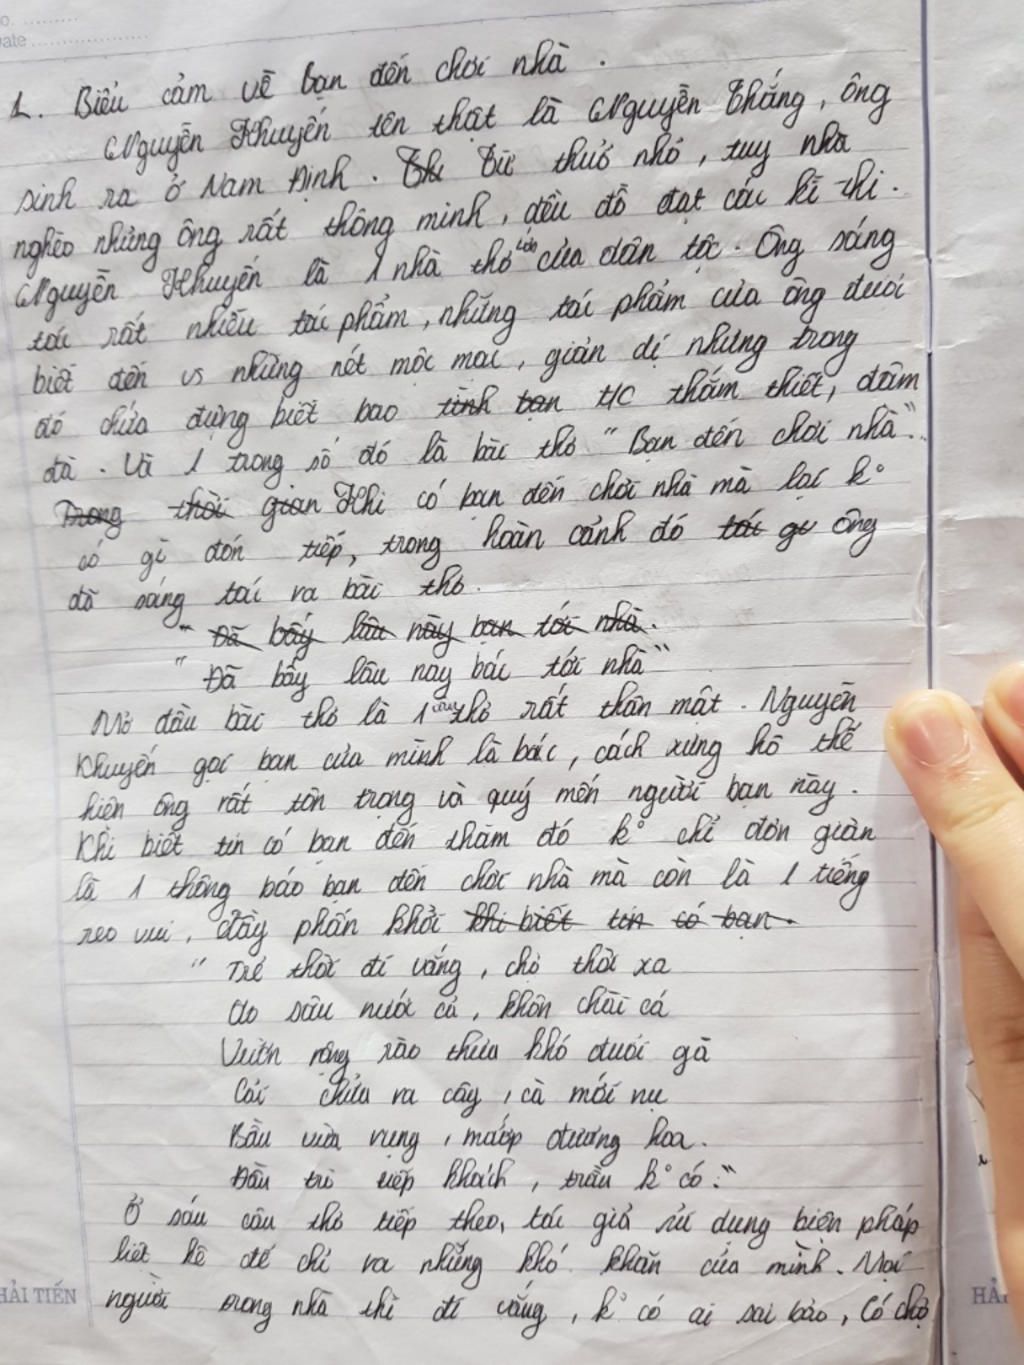 No. .........
Date ....................
1. Biểu cảm về bạn đến chơi nhà.
Nguyễn Khuyến tên thật là Nguyễn Thắng, ông
sinh ra ở Nam Định. Thi Từ thuở nhỏ, tuy nhà
nghèo nhưng ông rất thông minh, đều đỗ đạt các kì thi.
Nguyễn Khuyến là 1 nhà thơ lớn của dân tộc. Ông sáng
tác rất nhiều tác phẩm, những tác phẩm của ông được
biết đến vs những nét mộc mạc, giản dị nhưng trong
đó chứa đựng biết bao tình bạn t/c thắm thiết, đậm
đà. Và 1 trong số đó là bài thơ "Bạn đến chơi nhà".
Trong thời gian Khi có bạn đến chơi nhà mà lại k°
có gì đón tiếp, trong hoàn cảnh đó tác gi ông
đã sáng tác ra bài thơ.
" Đã bấy lâu này bạn tới nhà.
" Đã bấy lâu nay bác tới nhà"
Mở đầu bài thơ là 1 câu thơ rất thân mật. Nguyễn
Khuyến gọi bạn của mình là bác, cách xưng hô thể
hiện ông rất tôn trọng và quý mến người bạn này.
Khi biết tin có bạn đến thăm đó k° chỉ đơn giản
là 1 thông báo bạn đến chơi nhà mà còn là 1 tiếng
reo vui, đầy phấn khởi khi biết tin có bạn.
" Trẻ thời đi vắng, chợ thời xa
Ao sâu nước cả, khôn chài cá
Vườn rộng rào thưa khó đuổi gà
Cải chửa ra cây, cà mới nụ
Bầu vừa rụng, mướp đương hoa.
Đầu trò tiếp khách, trầu k° có."
Ở sáu câu thơ tiếp theo, tác giả sử dụng biện pháp
liệt kê để chỉ ra những khó khăn của mình. Mọi
người trong nhà thì đi vắng, k° có ai sai bảo, Có chợ
HẢI TIẾN
HẢI